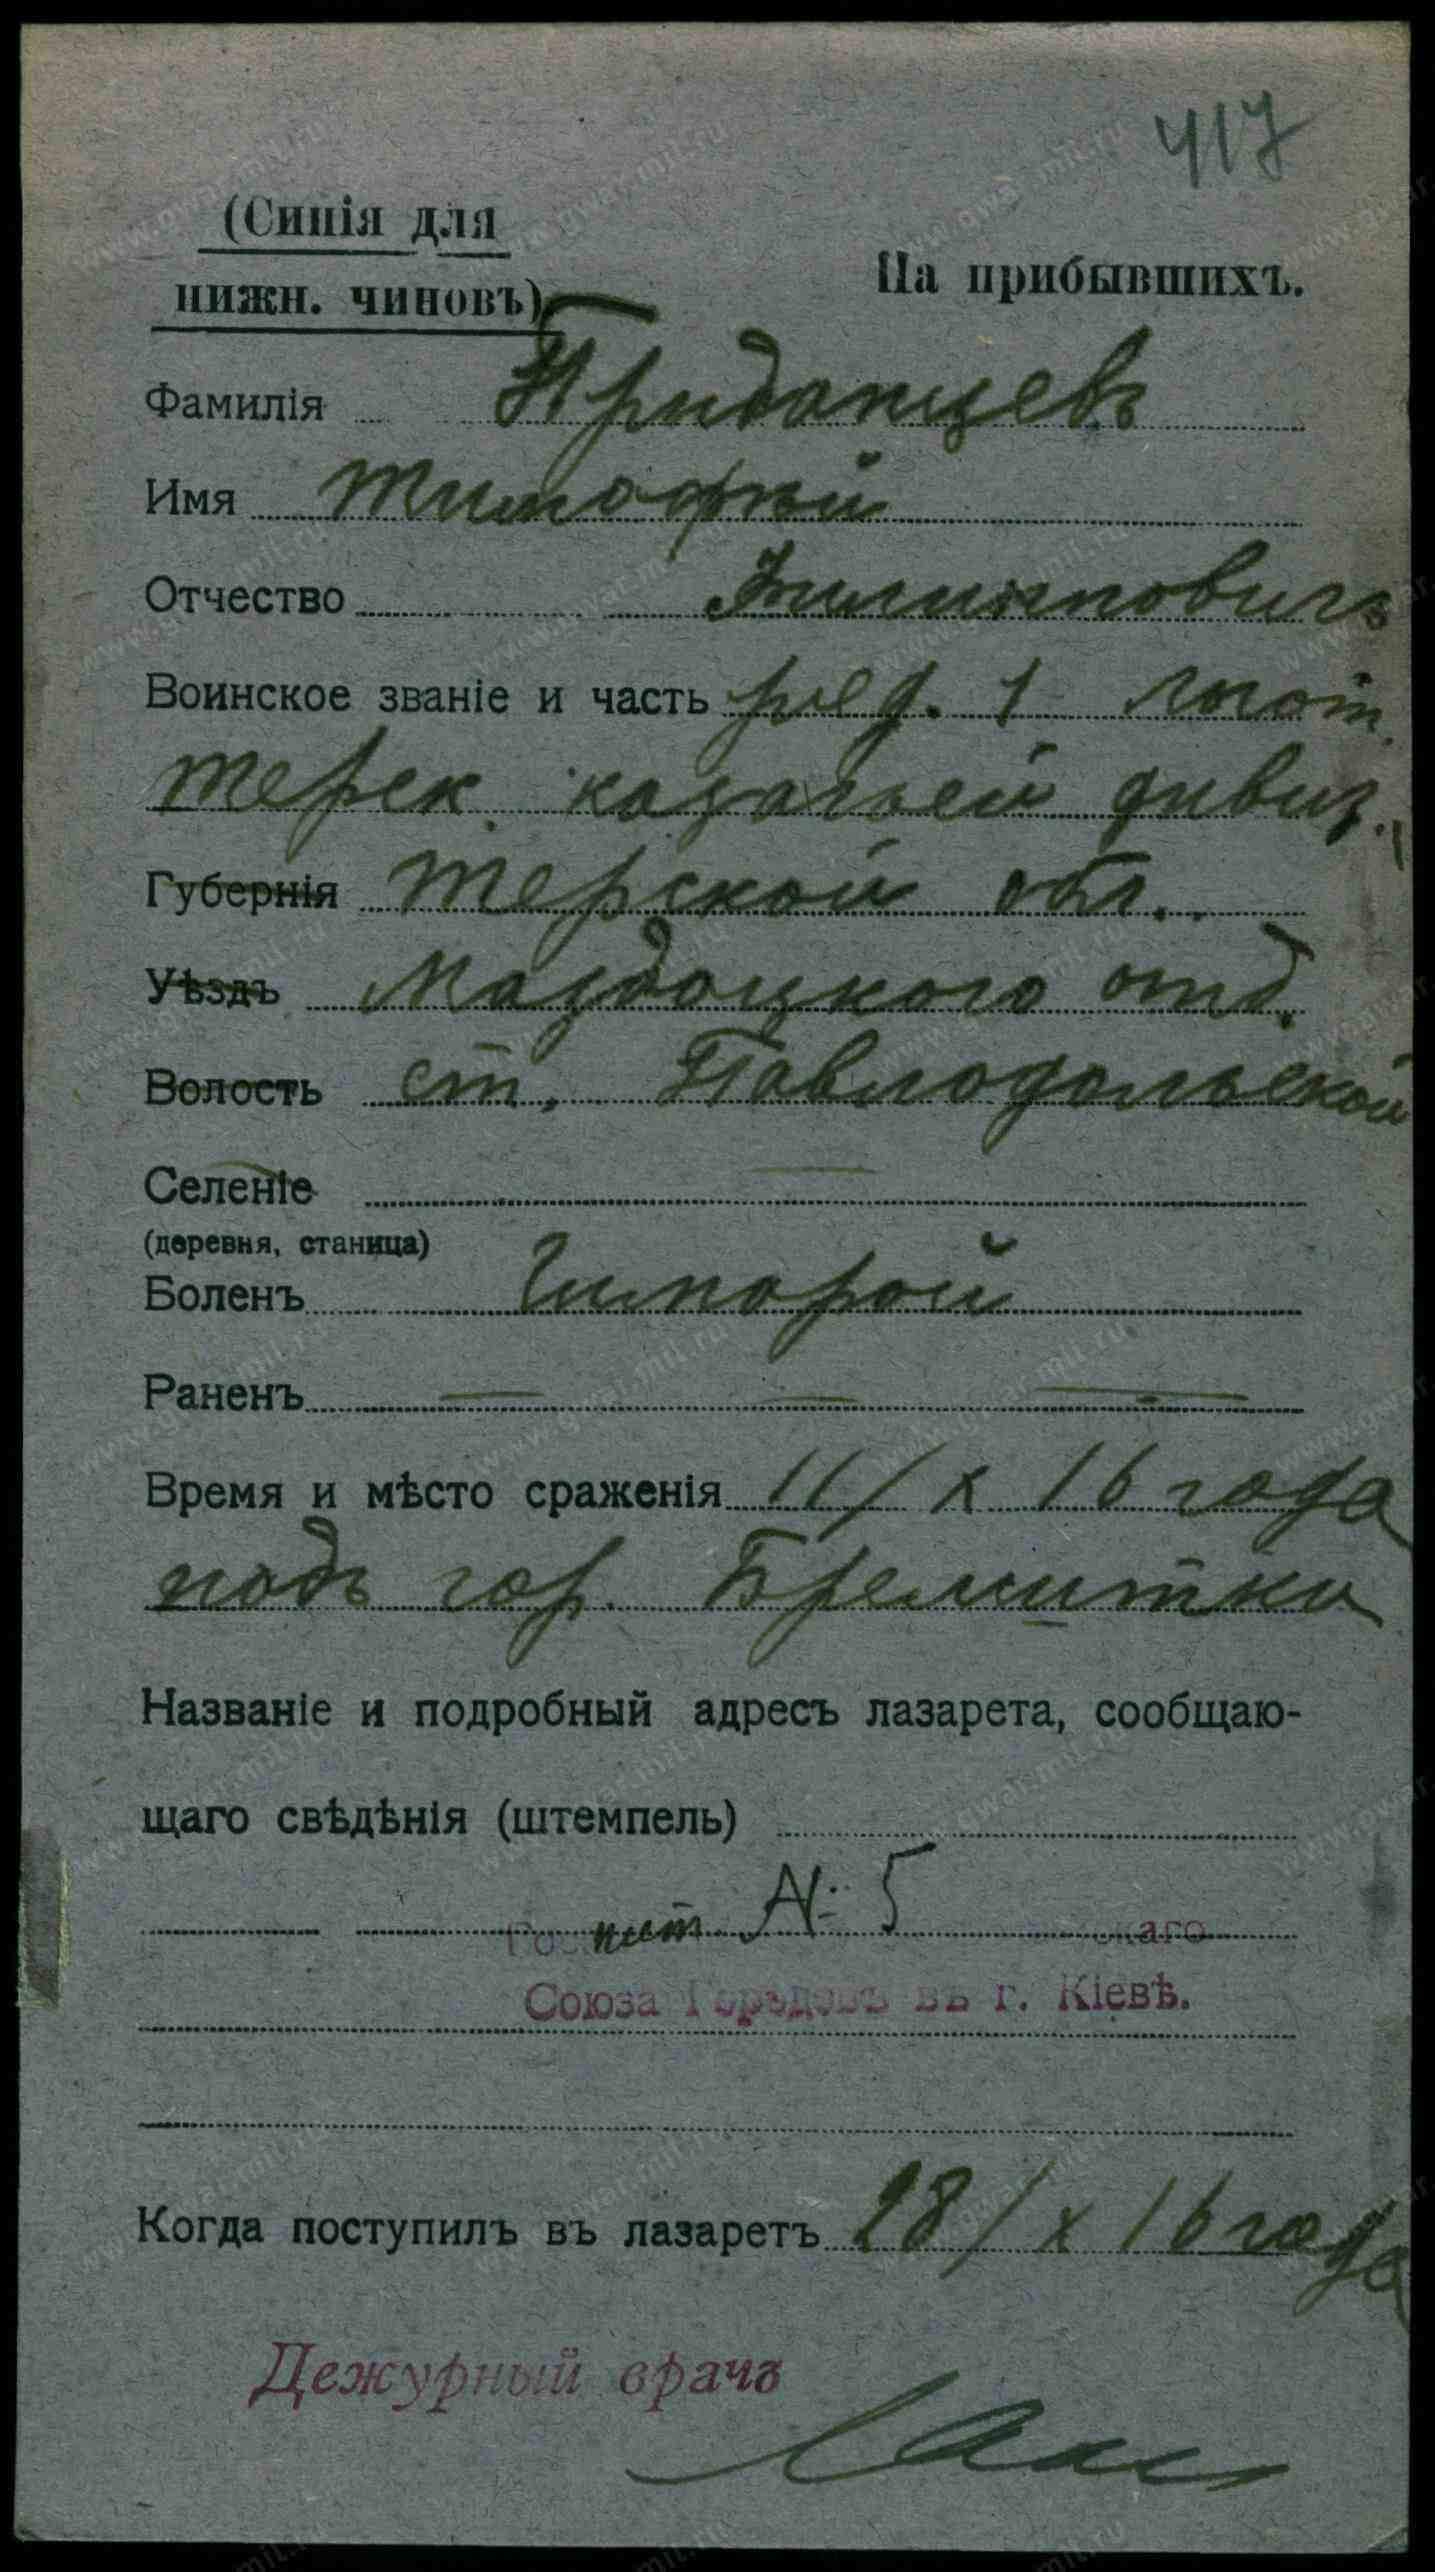 417
(Синія для
нижн. чиновъ)
На прибывшихъ.
Фамилія Приданцевъ
Имя Тимофѣй
Отчество Филипповичъ
Воинское званіе и часть ряд. 1 льгот.
Терск. казачьей дивиз.
Губернія Терской обл.
Уѣздъ Маздоцкого отд.
Волость ст. Павлодольской
Селеніе —
(деревня, станица)
Боленъ
Раненъ — — —
Время и мѣсто сраженія 11/X 16 года
подъ гор.
Названіе и подробный адресъ лазарета, сообщаю-
щаго свѣдѣнія (штемпель)
Госпит. № 5 скаго
Союза Городовъ въ г. Кіевѣ.
Когда поступилъ въ лазаретъ 28/X 16 года
Дежурный врачъ